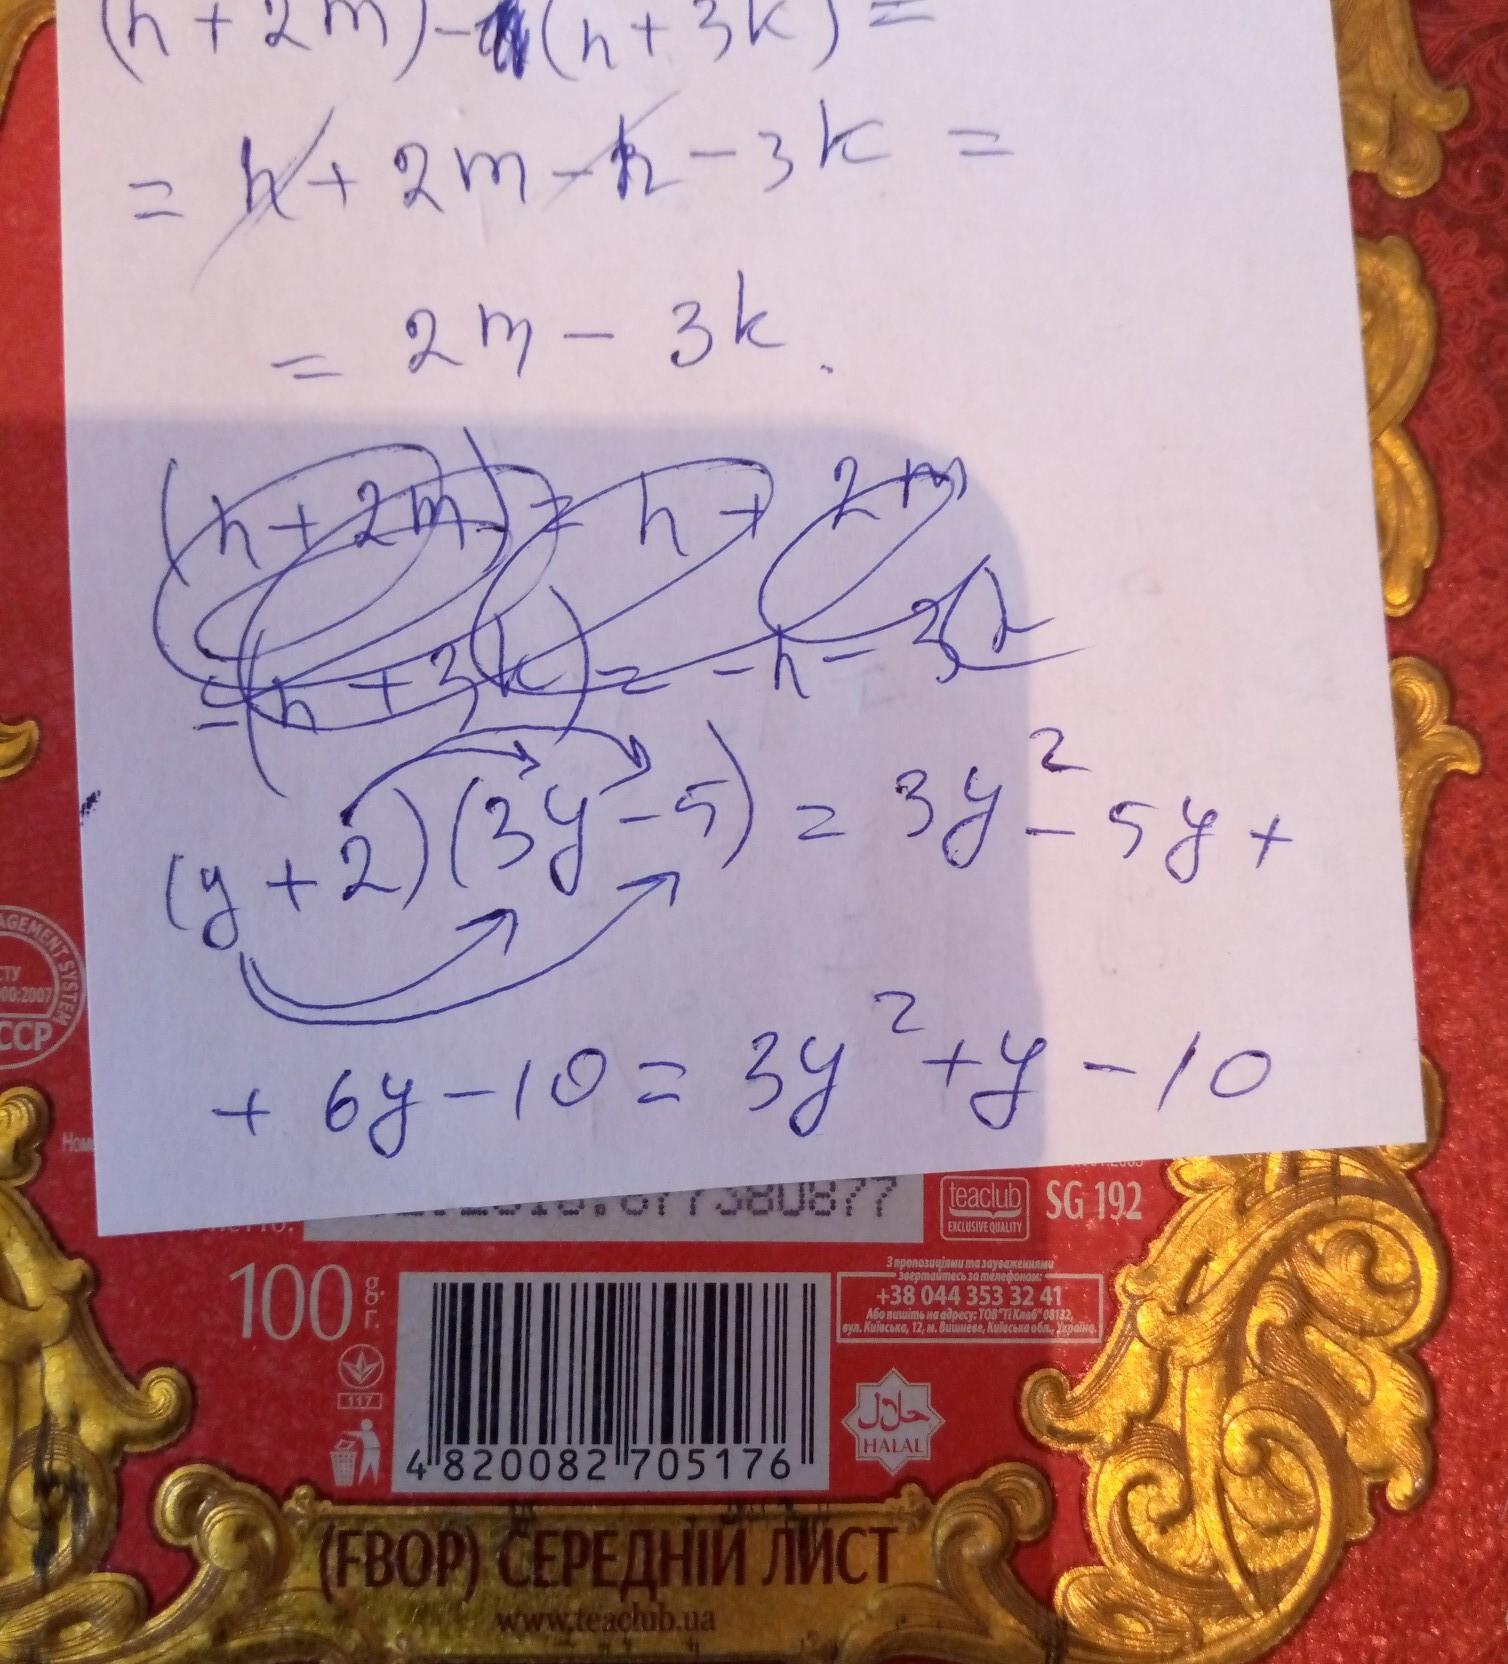 (n + 2m) - (n + 3k) =
= n + 2m - n - 3k =
= 2m - 3k.
(n + 2m) = n + 2m
-(n + 3k) = -n - 3
(y + 2)(3y - 5) = 3y² - 5y +
+ 6y - 10 = 3y² + y - 10
AGEMENT SYSTEM
СТУ
00:2007
CCP
teaclub
EXCLUSIVE QUALITY
SG 192
100 g.
г.
З пропозиціями та зауваженнями
звертайтесь за телефоном:
+38 044 353 32 41
Або пишіть на адресу: ТОВ "Ті Клаб" 08132,
вул. Київська, 12, м. Вишневе, Київська обл., Україна.
117
حلال
HALAL
4 820082 705176
(FBOP) СЕРЕДНІЙ ЛИСТ
www.teaclub.ua